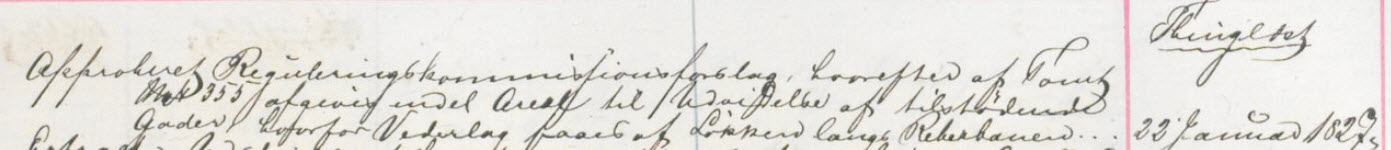 Thinglæst
Approberet Reguleringskommissionsforslag, hvorefter af Tomt
Mat 355 afgives endel Areal til Udvidelse af tilstødende
Gader, hvorfor Vederlag faaes af Løkken langs Reberbanen... 22 Januar 1827.